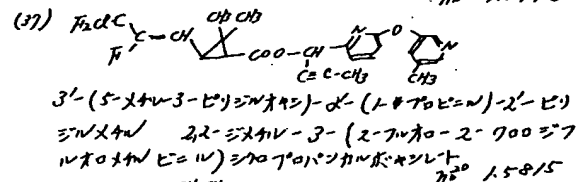 (37) F₂ClC CH₃ CH₃
F C=CH COO-CH N O N
C≡C-CH₃ CH₃
3'-(5-メチル-3-ピリジルオキシ)-α'-(1-プロピニル)-2'-ピリ
ジルメチル 2,2-ジメチル-3-(2-フルオロ-2-クロロジフ
ルオロメチルビニル)シクロプロパンカルボキシレート
n_D^20 1.5815